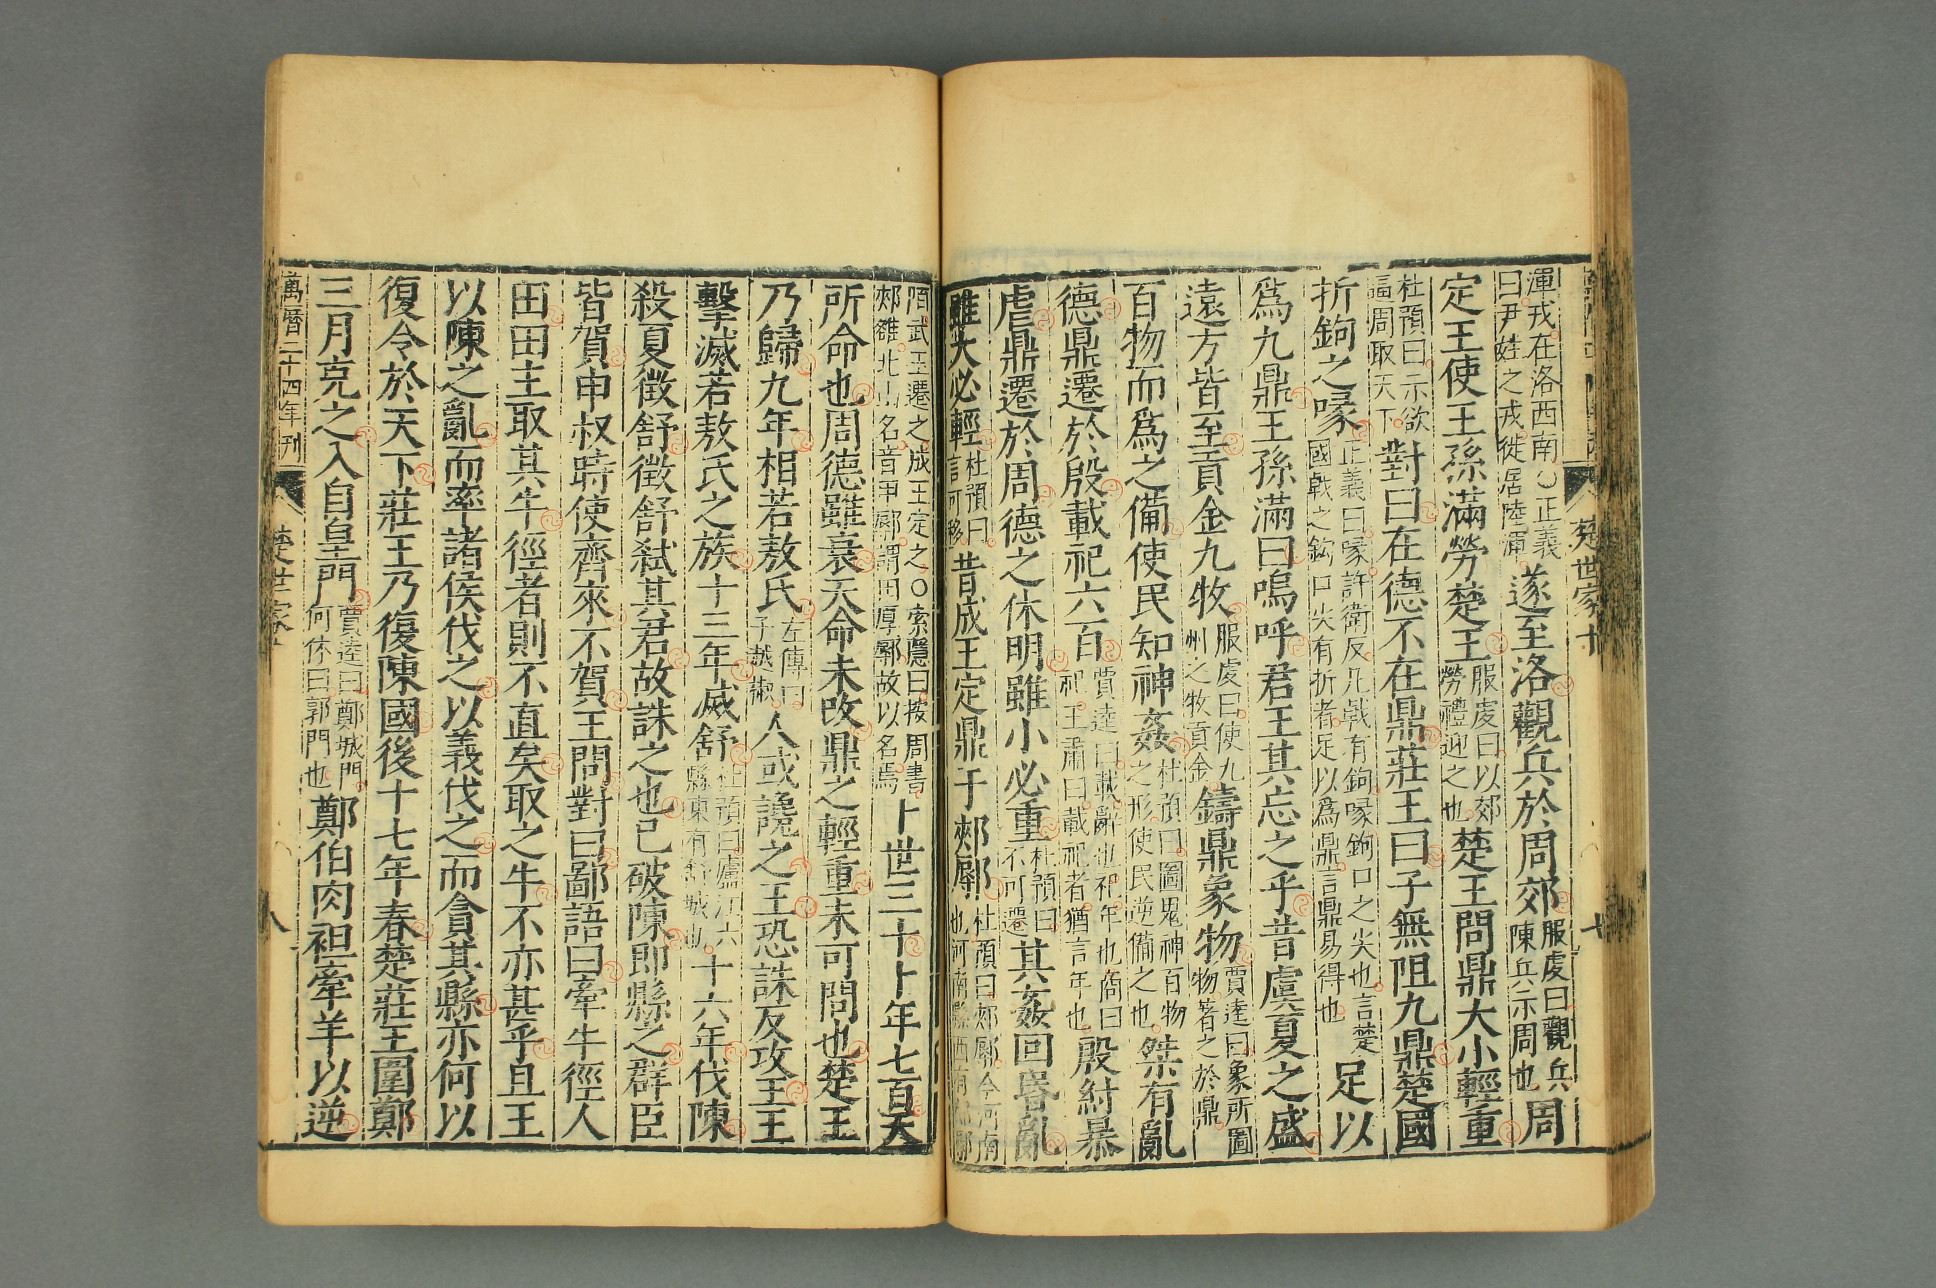 渾戎在洛西南○正義曰尹姓之戎徙居陸渾遂至洛觀兵於周郊服虔曰觀兵陳兵示周也周
定王使王孫滿勞楚王服虔曰以郊勞禮迎之也楚王問鼎大小輕重
杜預曰示欲逼周取天下對曰在德不在鼎莊王曰子無阻九鼎楚國
折鉤之喙正義曰喙許衛反凡戟有鉤喙鉤口之尖也言楚國戟之鉤口尖有折者足以爲鼎言鼎易得也足以
爲九鼎王孫滿曰嗚呼君王其忘之乎昔虞夏之盛
遠方皆至貢金九牧服虔曰使九州之牧貢金鑄鼎象物賈逵曰象所圖物著之於鼎
百物而爲之備使民知神姦杜預曰圖鬼神百物之形使民逆備之也桀有亂
德鼎遷於殷載祀六百賈逵曰載辭也祀年也商曰祀王肅曰載祀者猶言年也殷紂暴
虐鼎遷於周德之休明雖小必重杜預曰不可遷其姦回昬亂
雖大必輕杜預曰言可移昔成王定鼎于郟鄏杜預曰郟鄏今河南也河南縣西有郟鄏
楚世家十
陌武王遷之成王定之○索隱曰按周書郟雒北山名音甲鄏謂田厚鄏故以名焉卜世三十卜年七百天
所命也周德雖衰天命未改鼎之輕重未可問也楚王
乃歸九年相若敖氏左傳曰子越椒人或讒之王恐誅反攻王王
擊滅若敖氏之族十三年滅舒杜預曰廬江六縣東有舒城也十六年伐陳
殺夏徵舒徵舒弒其君故誅之也已破陳即縣之群臣
皆賀申叔時使齊來不賀王問對曰鄙語曰牽牛徑人
田田主取其牛徑者則不直矣取之牛不亦甚乎且王
以陳之亂而率諸侯伐之以義伐之而貪其縣亦何以
復令於天下莊王乃復陳國後十七年春楚莊王圍鄭
三月克之入自皇門賈逵曰鄭城門何休曰郭門也鄭伯肉袒牽羊以逆
萬曆二十四年刊
楚世家
八